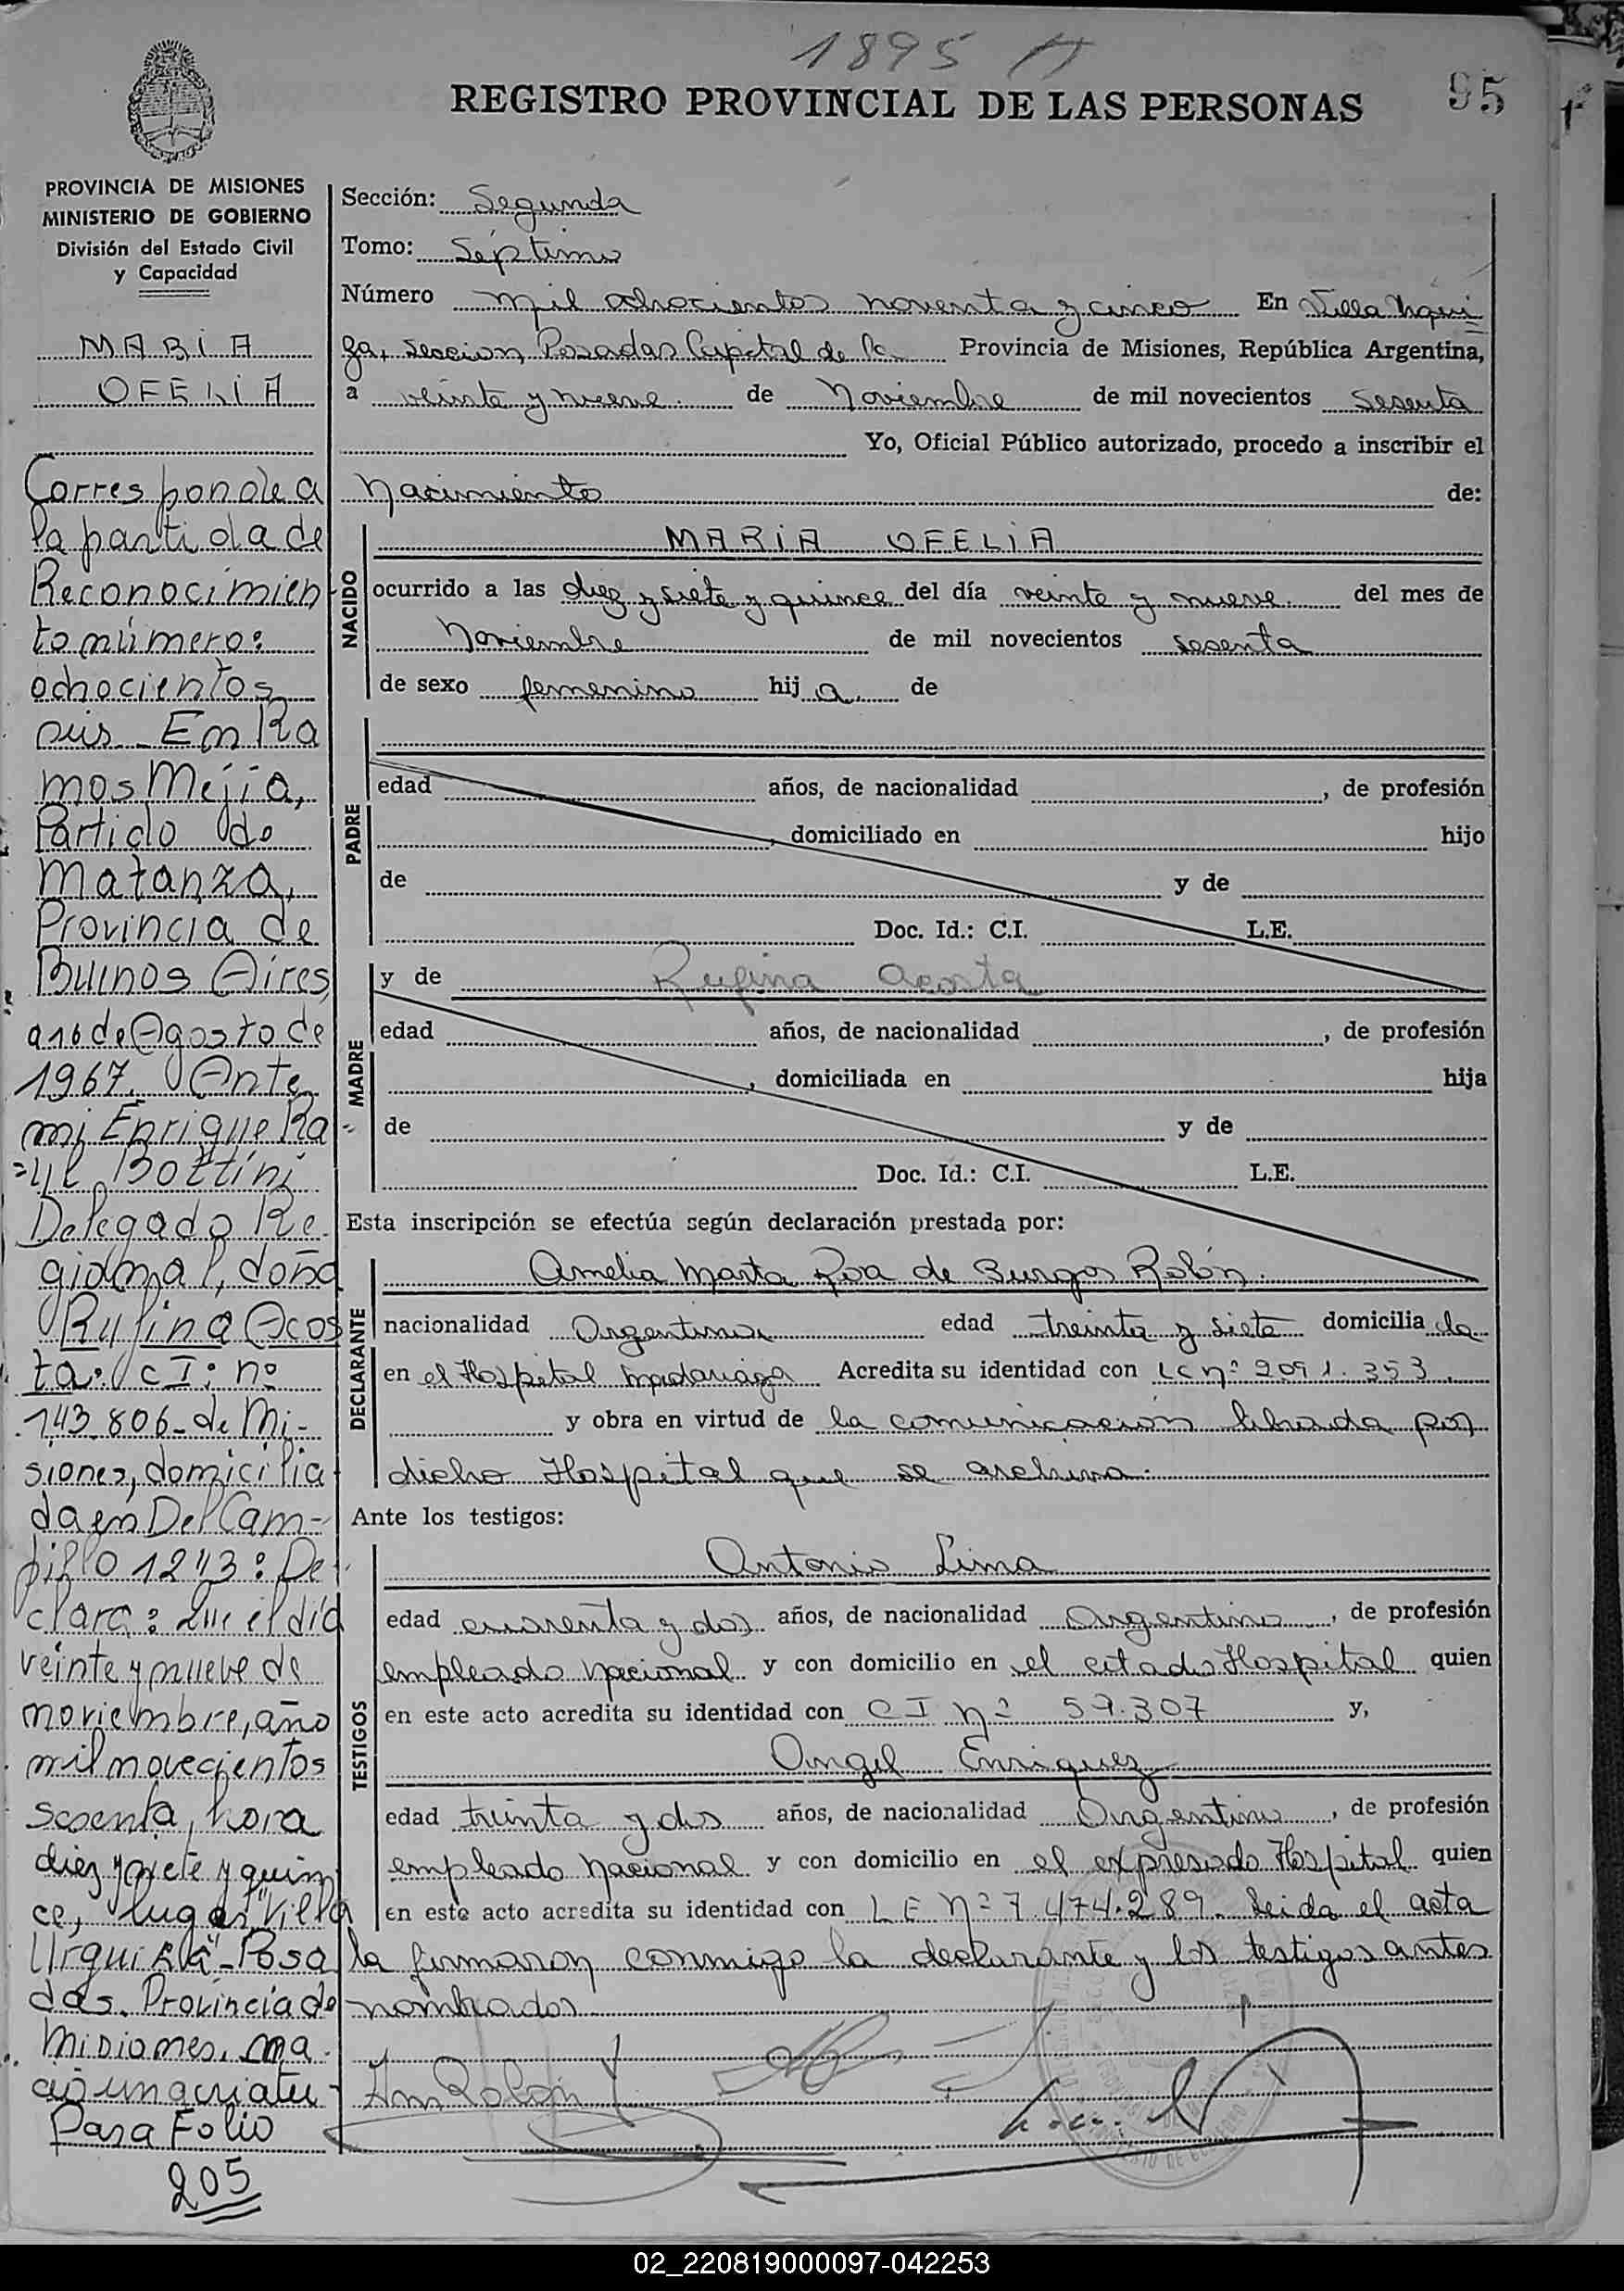 1895 A
REGISTRO PROVINCIAL DE LAS PERSONAS
95
PROVINCIA DE MISIONES
MINISTERIO DE GOBIERNO
División del Estado Civil
y Capacidad
MARIA
OFELIA
Corresponde a
la partida de
Reconocimien
to número:
ochocientos
seis - En Ra
mos Mejía,
Partido de
Matanza,
Provincia de
Buenos Aires
a 16 de Agosto de
1967. Ante
mi Enrique Ra
=ul Bottini
Delegado Re
gional, doña
Rufina Acos
ta: CI: nº
143.806- de Mi-
siones, domicilia
da en Del Cam-
pillo 1243: De-
clara: Que el día
veinte y nueve de
noviembre, año
mil novecientos
sesenta, hora
diez y siete y quin
ce, lugar "Villa
Urquiza"- Posa
das. Provincia de
Misiones, na
ció una criatu-
Pasa Folio
205
Sección: Segunda
Tomo: Séptimo
Número mil ochocientos noventa y cinco En Villa Urqui
za, Sección Posadas Capital de la Provincia de Misiones, República Argentina,
a veinte y nueve de Noviembre de mil novecientos sesenta
Yo, Oficial Público autorizado, procedo a inscribir el
Nacimiento de:
NACIDO
MARIA OFELIA
ocurrido a las diez y siete y quince del día veinte y nueve del mes de
Noviembre de mil novecientos sesenta
de sexo femenino hija de
PADRE
edad años, de nacionalidad , de profesión
, domiciliado en hijo
de y de
Doc. Id.: C.I. L.E.
MADRE
y de Rufina Acosta
edad años, de nacionalidad , de profesión
, domiciliada en hija
de y de
Doc. Id.: C.I. L.E.
Esta inscripción se efectúa según declaración prestada por:
DECLARANTE
Amelia Marta Roa de Burgos Rolón.
nacionalidad Argentina edad treinta y siete domicilia da
en el Hospital Madariaga Acredita su identidad con LC nº 2091.353.
y obra en virtud de la comunicación librada por
dicho Hospital que se archiva.
Ante los testigos:
TESTIGOS
Antonio Lima
edad cuarenta y dos años, de nacionalidad Argentino , de profesión
empleado nacional y con domicilio en el citado Hospital quien
en este acto acredita su identidad con CI nº 59.307 y,
Angel Enriquez
edad treinta y dos años, de nacionalidad Argentino , de profesión
empleado nacional y con domicilio en el expresado Hospital quien
en este acto acredita su identidad con LE Nº 7.474.289. Leida el acta
la firmaron conmigo la declarante y los testigos antes
nombrados
02_220819000097-042253